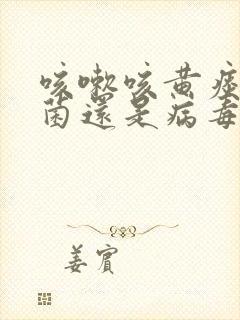 咳嗽咳黃痰
菌還是病毒
姜賓